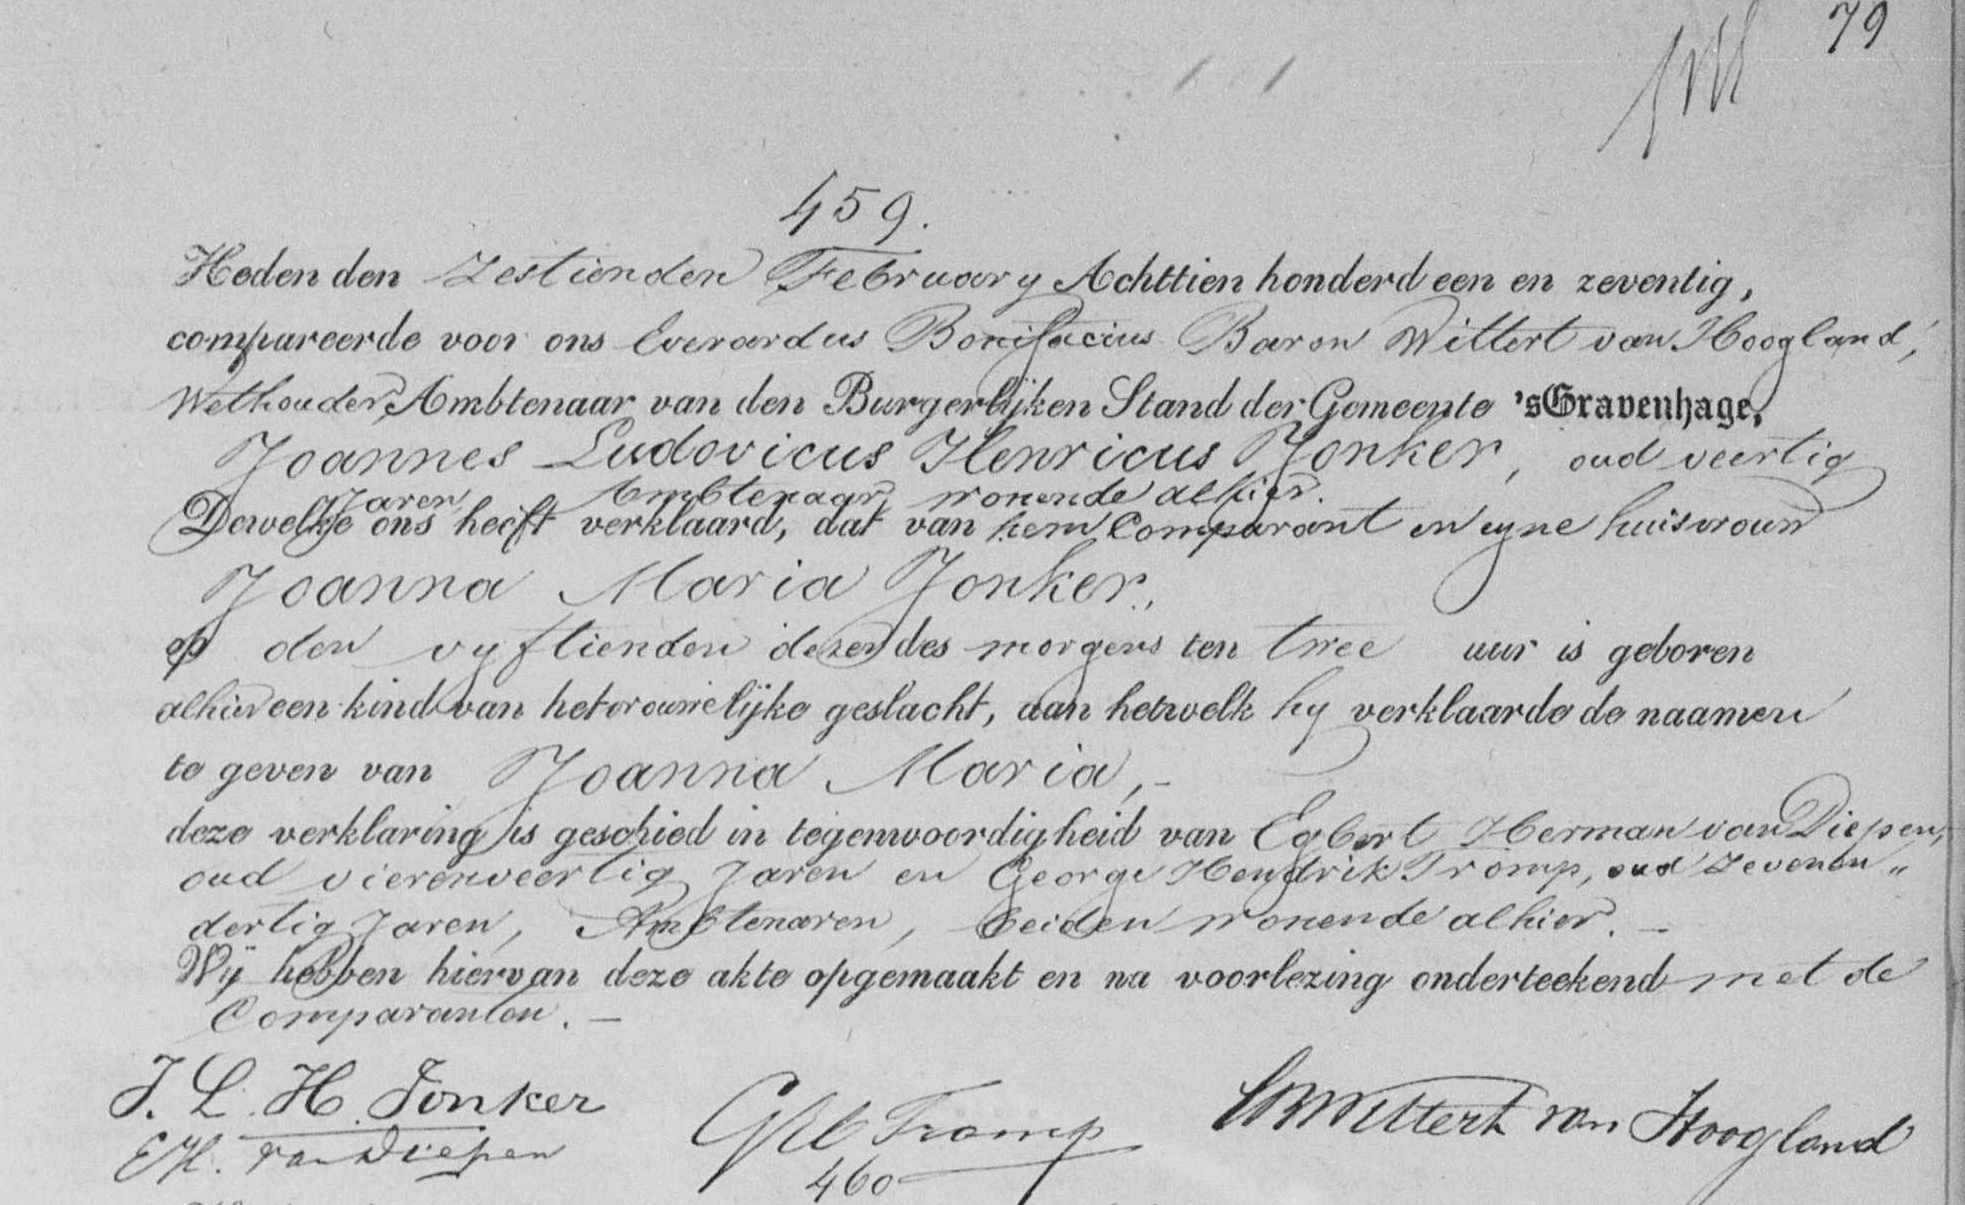 79
459.
Heden den zestienden February Achttien honderd een en zeventig,
compareerde voor ons Everardus Bonifacius Baron Wittert van Hoogland,
Wethouder, Ambtenaar van den Burgerlijken Stand der Gemeente 'sGravenhage,
Joannes Ludovicus Henricus Jonker, oud veertig
Jaren, Ambtenaar, wonende alhier.
Dewelke ons heeft verklaard, dat van hem Comparant en zyne huisvrouw
Joanna Maria Jonker,
op den vyftienden dezer des morgens ten twee uur is geboren
alhier een kind van het vrouwelijke geslacht, aan hetwelk hy verklaarde de naamen
te geven van Joanna Maria, –
deze verklaring is geschied in tegenwoordigheid van Egbert Herman van Diepen,
oud vierenveertig Jaren en George Hendrik Tromp, oud zevenen„
dertig Jaren, Ambtenaren, beiden wonende alhier. –
Wij hebben hiervan deze akte opgemaakt en na voorlezing onderteekend met de
Comparanten. –
J. L. H. Jonker
E.H. van Diepen
GH Tromp
EBWittert van Hoogland
460